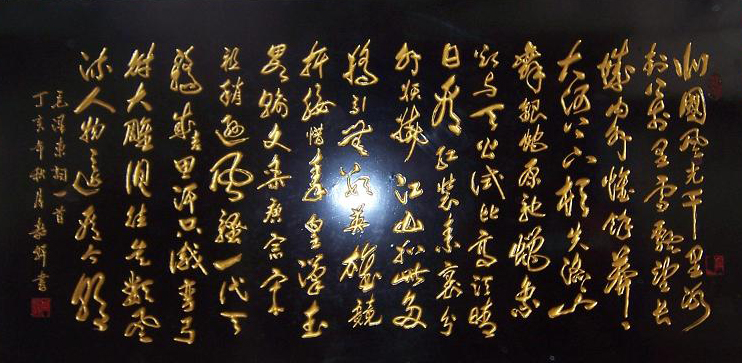 北國风光千里冰
封万里雪飘望长
城内外惟馀莽莽
大河上下顿失滔滔山
舞银蛇原驰蜡象
欲与天公试比高须晴
日看红装素裹分
外妖娆江山如此多
娇引无数英雄竞
折腰惜秦皇汉武
略输文采唐宗宋
祖稍逊风骚一代天
骄成吉思汗只识弯弓
射大雕俱往矣数风
流人物还看今朝
毛泽东词一首
丁亥年秋月书